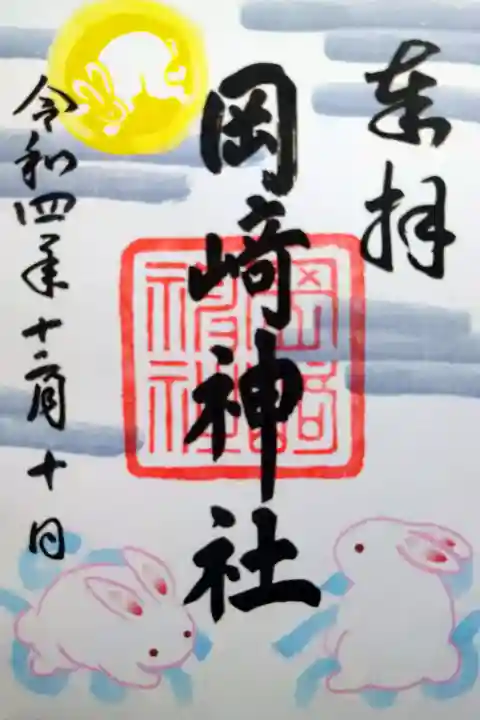 奉拝
岡﨑神社
岡﨑神社
令和四年十二月十日